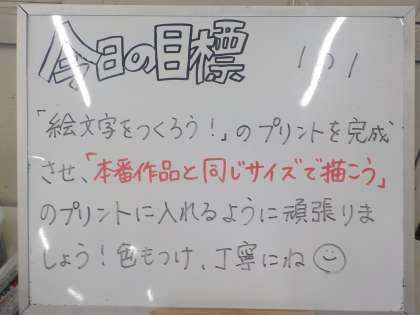 今日の目標
101
「絵文字をつくろう！」のプリントを完成
させ、「本番作品と同じサイズで描こう」
のプリントに入れるように頑張りま
しょう！色もつけ、丁寧にね